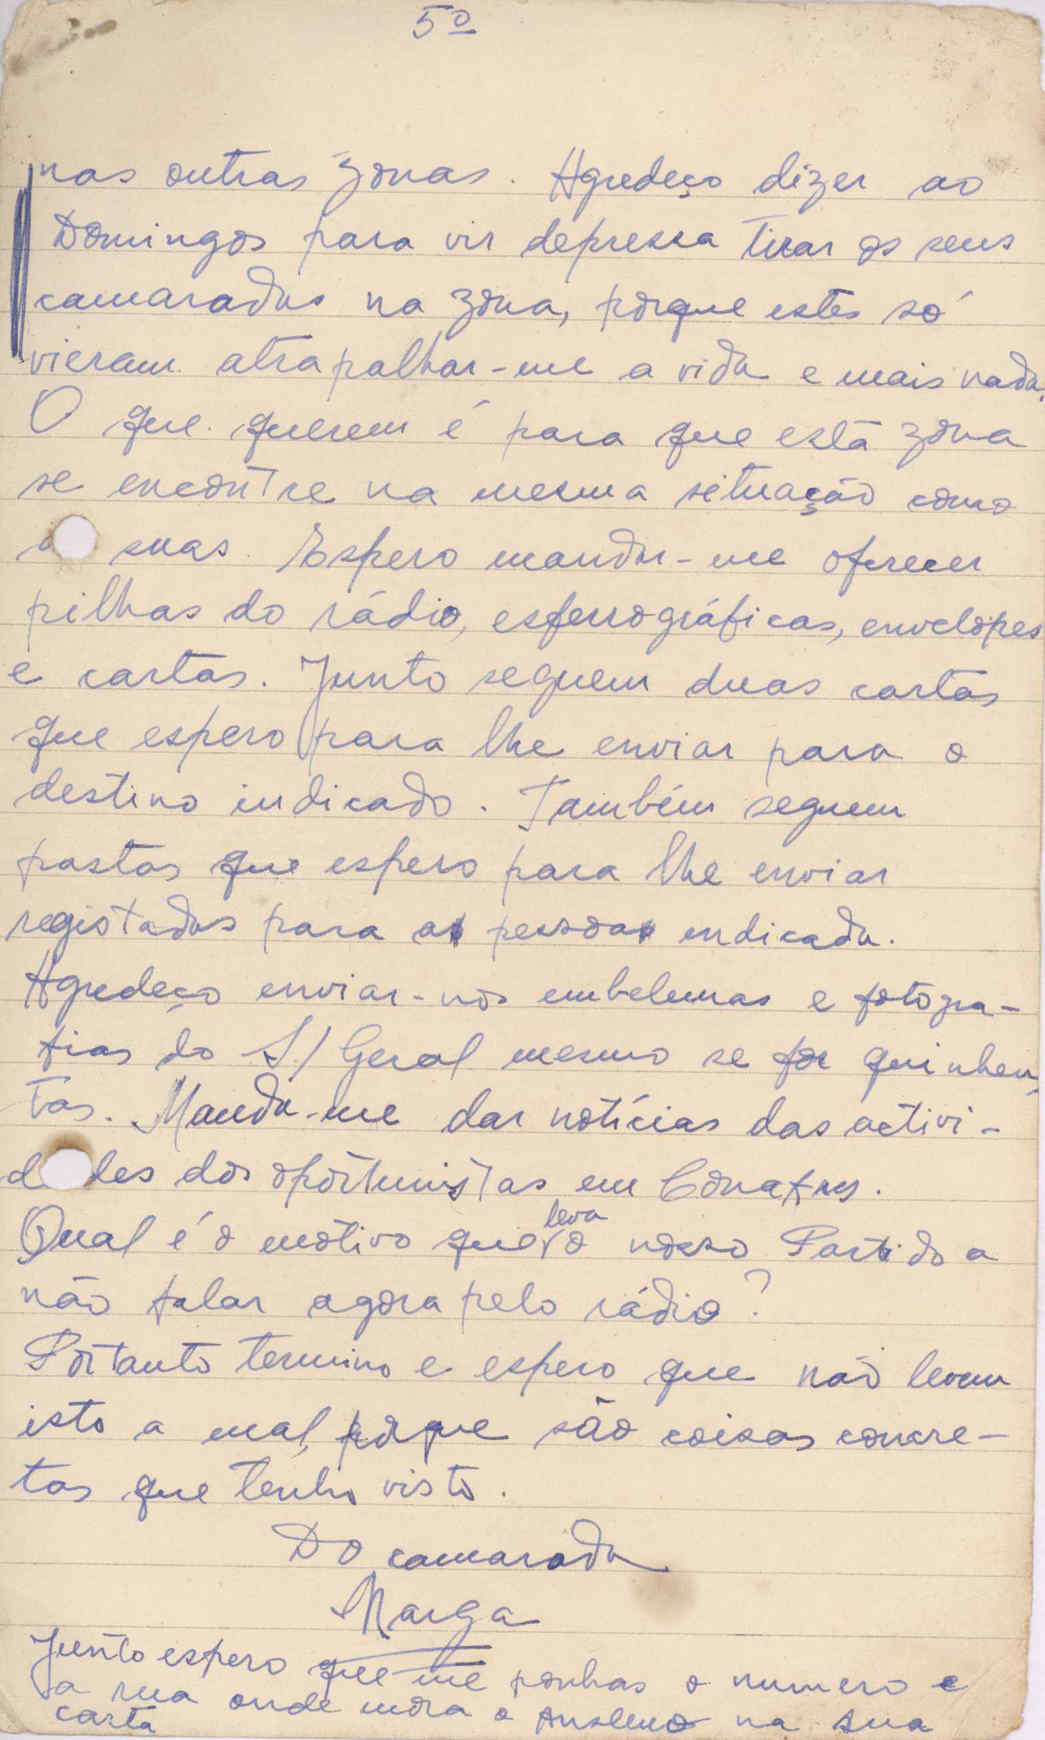 5º
nas outras zonas. Agredeço dizer ao
Domingos para vir depressa tirar os seus
camaradas na zona, porque estes só
vieram atrapalhar-me a vida e mais nada.
O que querem é para que está zona
se encontre na mesma situação como
suas. Espero mandar-me oferecer
pilhas do rádio, esferrográficas, envelopes
e cartas. Junto seguem duas cartas
que espero para lhe enviar para o
destino indicado. Também seguem
pastas que espero para lhe enviar
registadas para a pessoa indicada.
Agredeço enviar-nos embelemas e fotogra-
fias do S/Geral mesmo se for quinhen-
tas. Manda-me dar notícias das activi-
d des dos oportunistas em Conakry.
Qual é o motivo que leva o nosso Partido a
não falar agora pelo rádio?
Portanto termino e espero que não levem
isto a mal, porque são coisas concre-
tas que tenho visto.
Do camarada
Marga
Junto espero que me ponhas o numero e
a rua onde mora o Anselmo na sua
carta